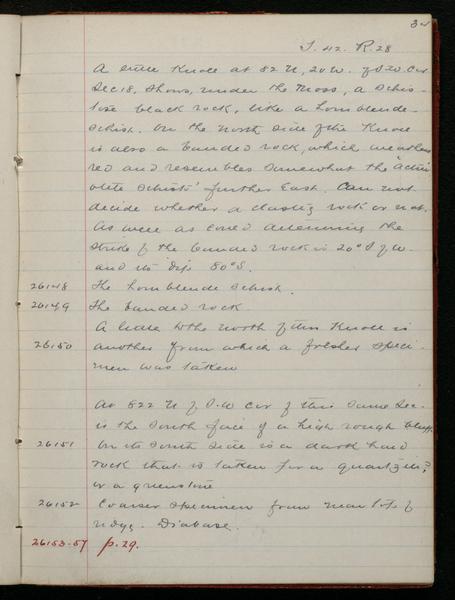 T. 42. R. 28
A little Knoll at 82 N, 20 W. of S.W. Cor
Sec 18, shows, under the moss, a schis-
tose black rock, like a hornblende-
schist. On the north side of the Knoll
is also a banded rock, which weathers
red and resembles somewhat the "actin-
olite schists" further East. Can not
decide whether a clastic rock or not.
As well as could determine the
strike of the banded rock is 20° S of W.
and its dip 80° S.
26148 The hornblende schist.
26149 The banded rock.
A ledge to the north of this Knoll is
26150 another from which a fresher speci-
men was taken
At 822 N of S.W Cor of this same Sec.
is the South face of a high rough bluff.
26151 On its South side is a dark hard
rock that is taken for a quartzite?
or a greenstone
26152 Coarser specimen from near top of
ridge. Diabase.
26153-57 p. 29.